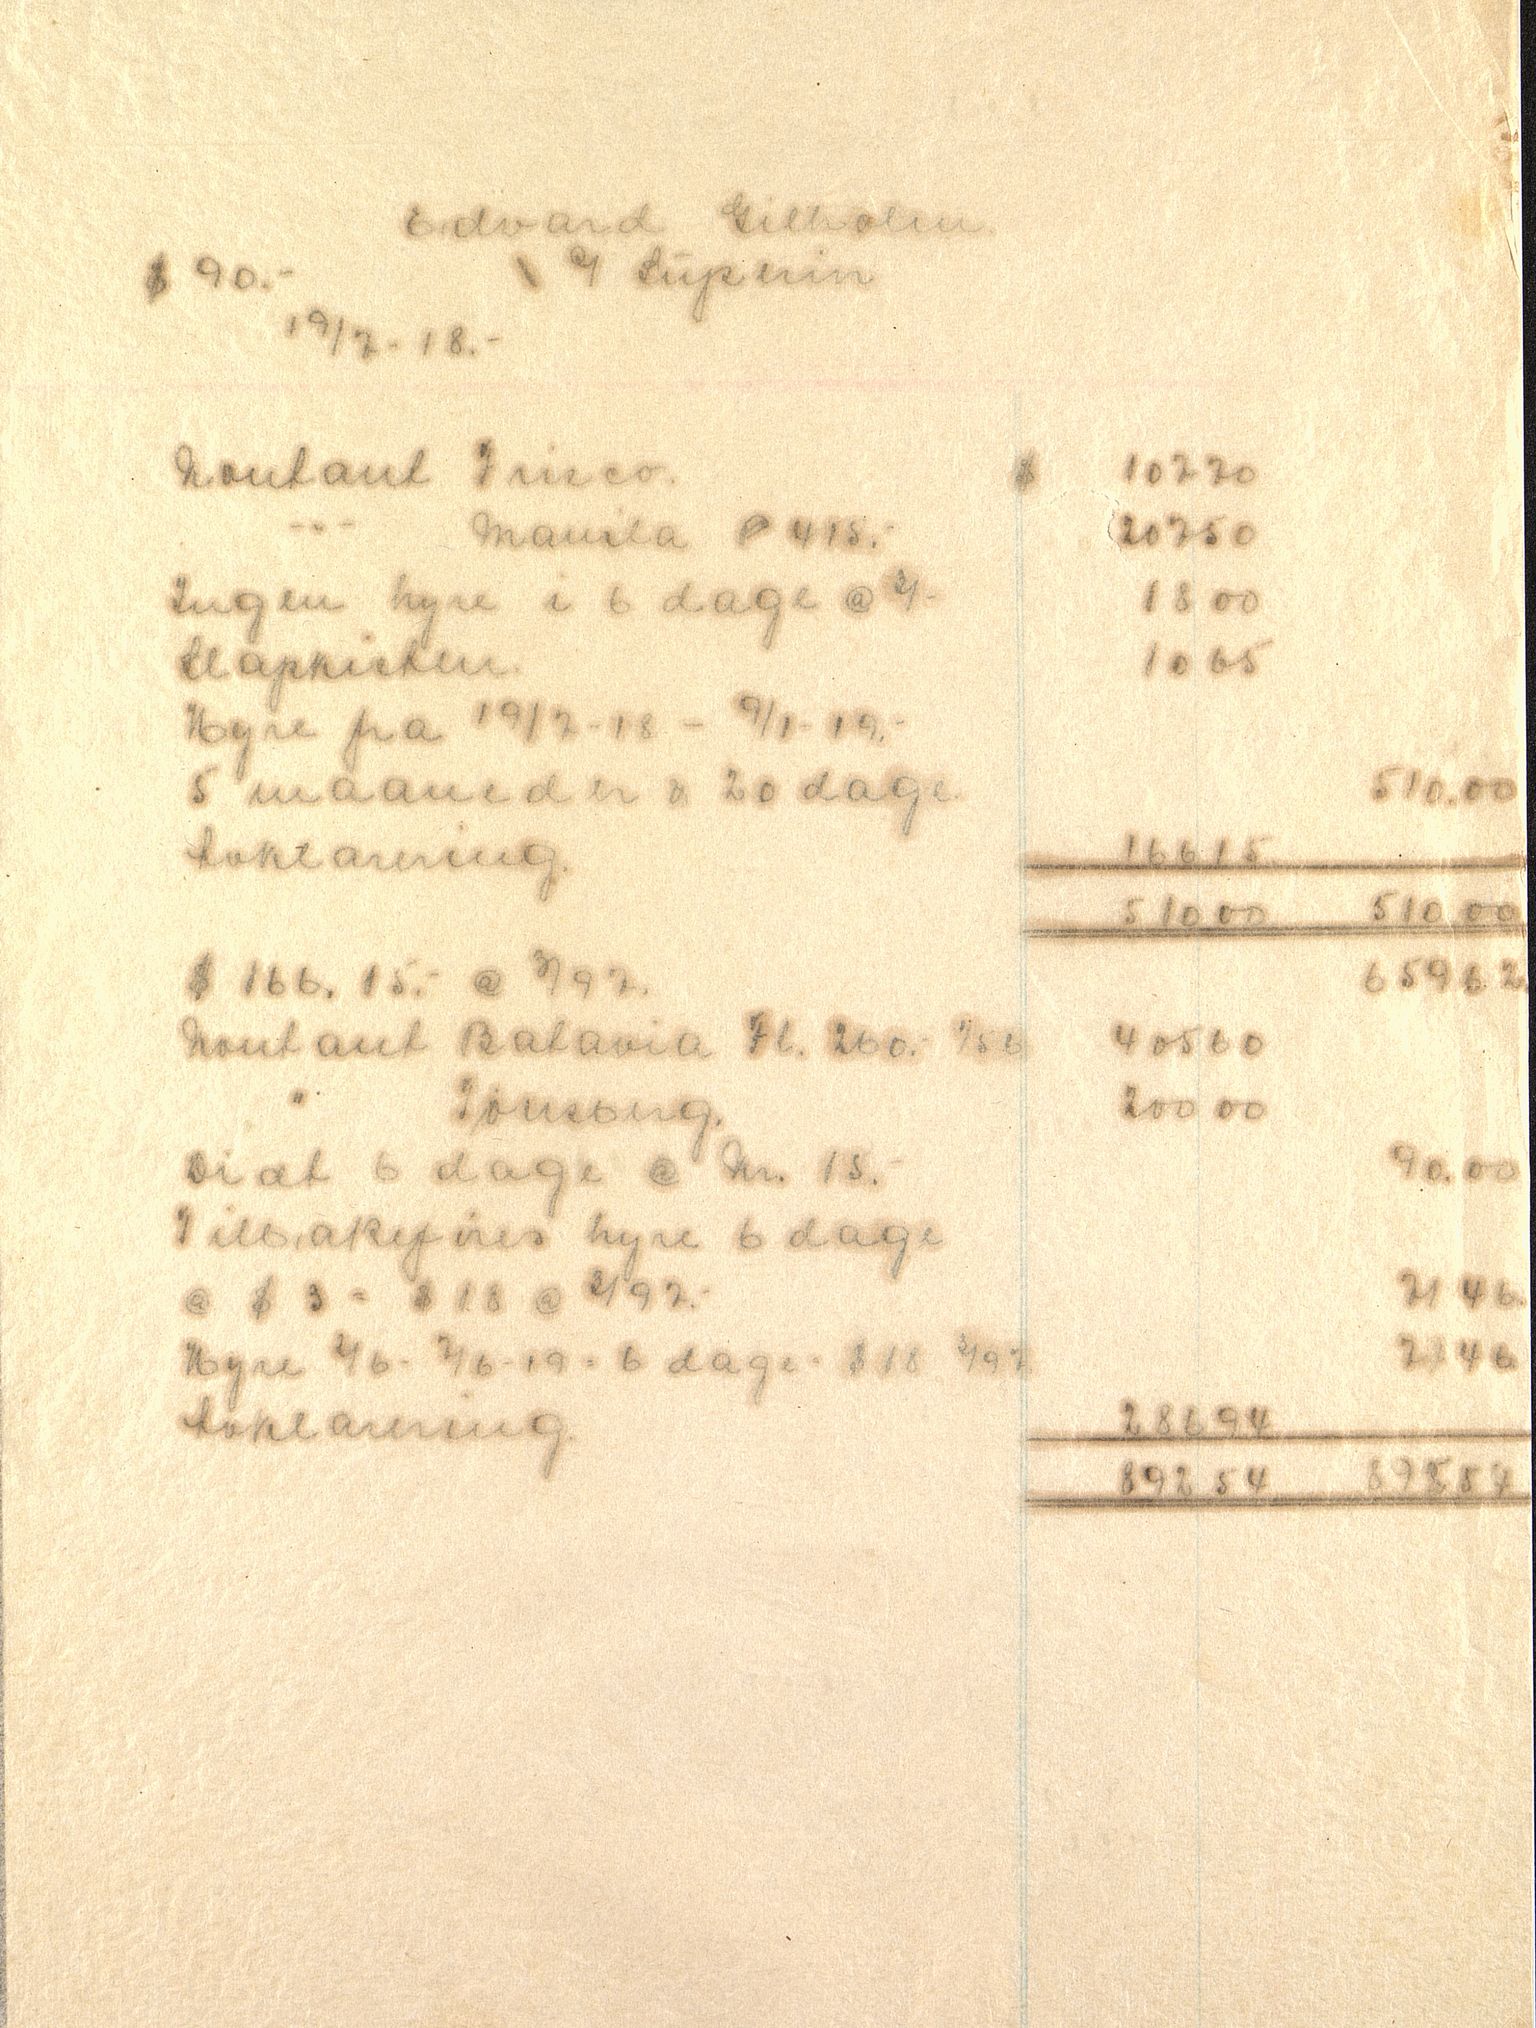 Edvard Gilholm.
$ 90.- Superin
19/7-18.-
Kontant Frisco. $ 107 70
-"- Manila P 415.- 207 50
Ingen hyre i 6 dage @ 3/- 18 00
Slapkisten. 10 65
Hyre fra 19/7-18 - 9/1-19.-
5 maaneder & 20 dage. 510.00
Avklarering. 166 15
510 00 510 00
$ 166.15.- @ 3/97. 659 62
Kontant Batavia Fl. 260.- 156 405 60
" Tönsberg. 200 00
Diæt 6 dage @ Kr. 15.- 90.00
Tilbakeføres hyre 6 dage
@ $ 3 = $ 18 @ 3/97.- 71 46
Hyre 2/6- 7/6-19 = 6 dage = $ 18 3/97 71 46
Avklarering. 286 94
892 54 892 54